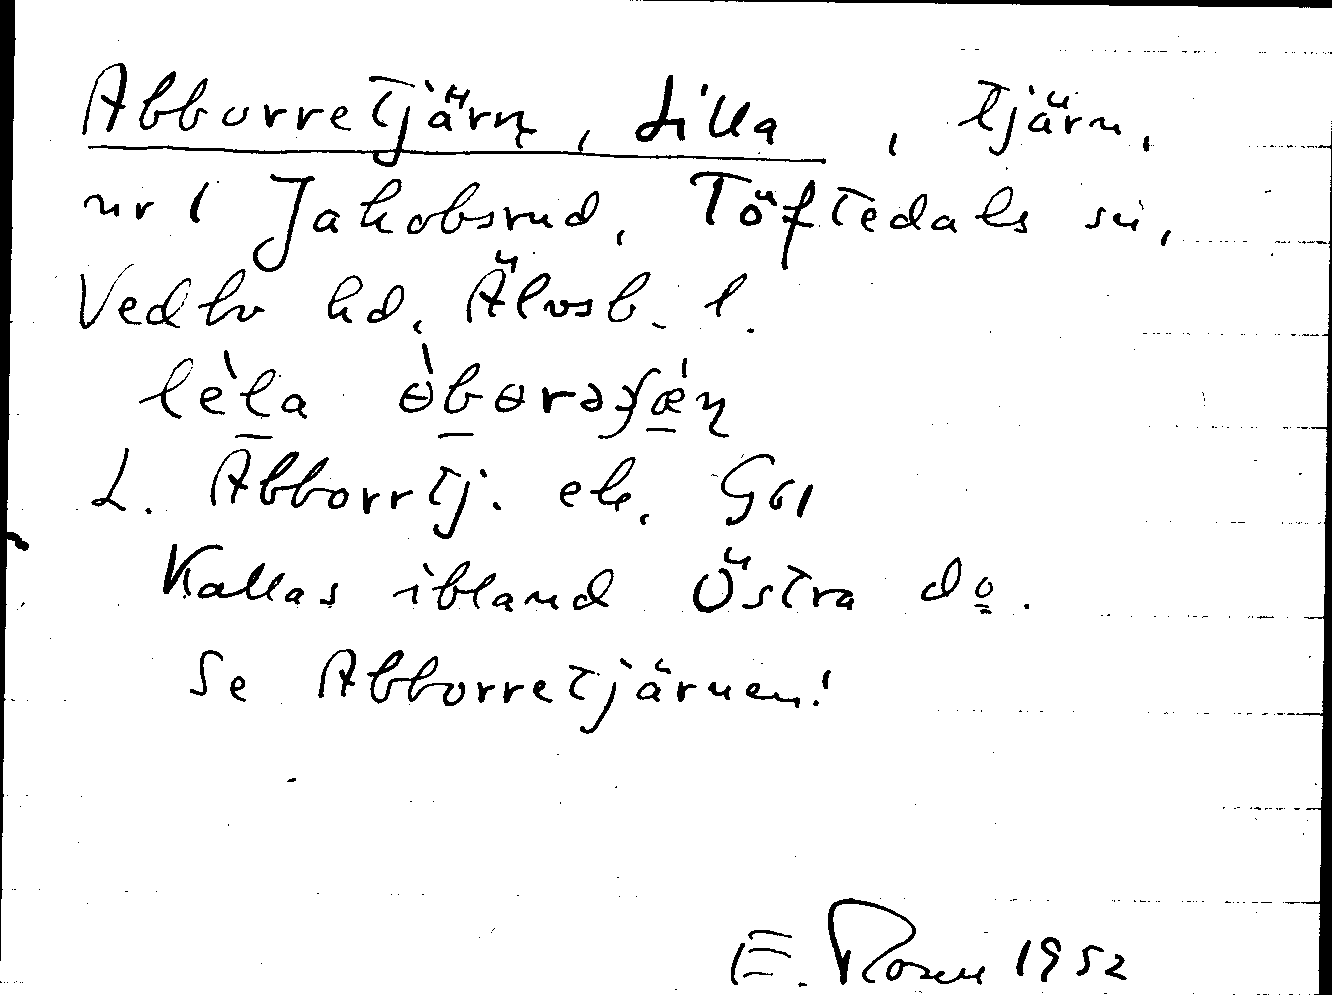 Abborretjärn, Lilla, tjärn,
nr 1 Jakobsrud, Töftedals sn,
Vedbo hd, Älvsb. l.
lèla òbɵrəʃǽɳ
L. Abborrtj. ek. G61
Kallas ibland Östra do.
Se Abborretjärnen!
E. Rosen 1952